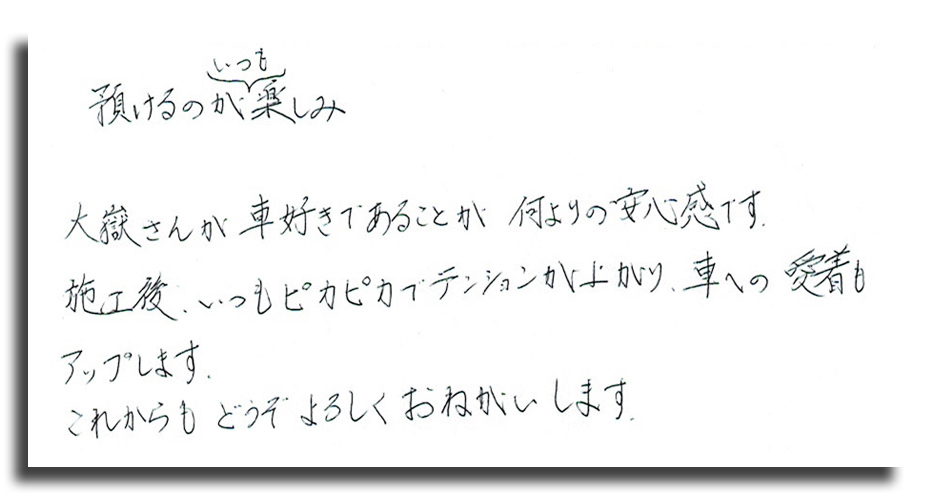 預けるのがいつも楽しみ
大嶽さんが車好きであることが何よりの安心感です.
施工後、いつもピカピカでテンションが上がり、車への愛着も
アップします.
これからもどうぞよろしくおねがいします.